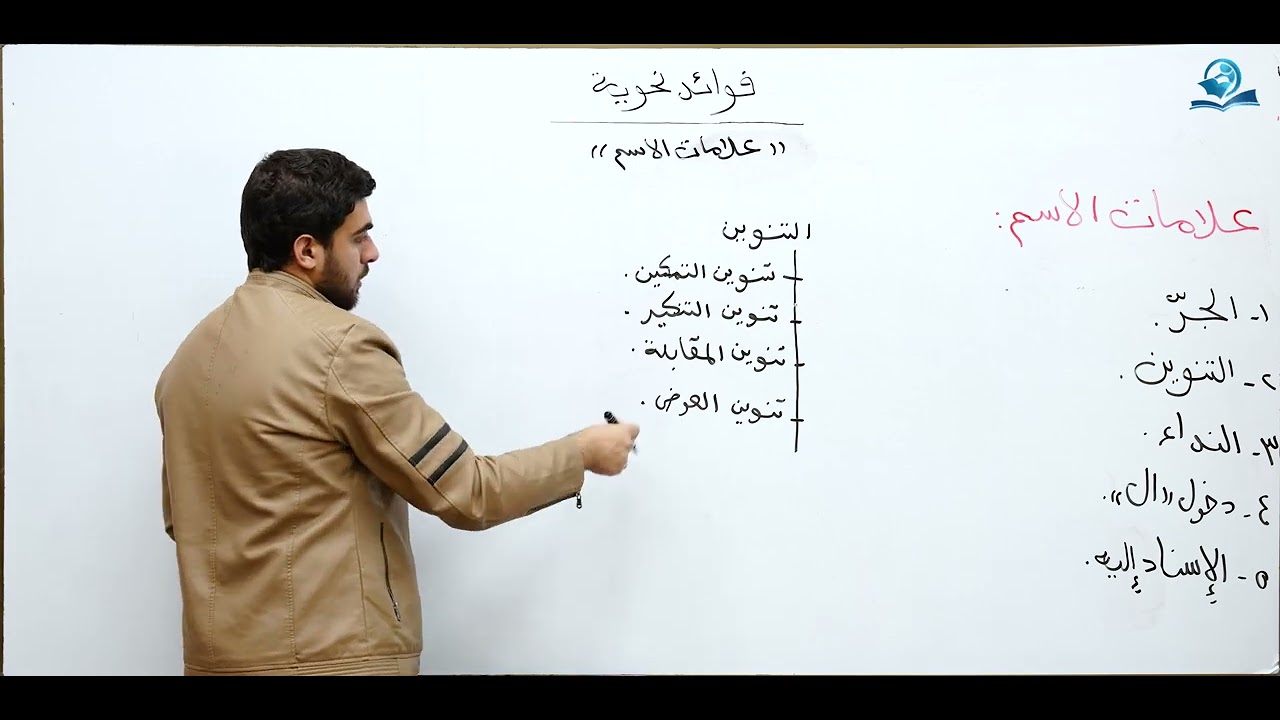 فوائد نحوية
«علامات الاسم»
علامات الاسم:
١- الجرّ.
٢- التنوين.
٣- النداء.
٤- دخول «ال».
٥- الإسناد إليه.
التنوين
تنوين التمكين.
تنوين التنكير.
تنوين المقابلة.
تنوين العوض.